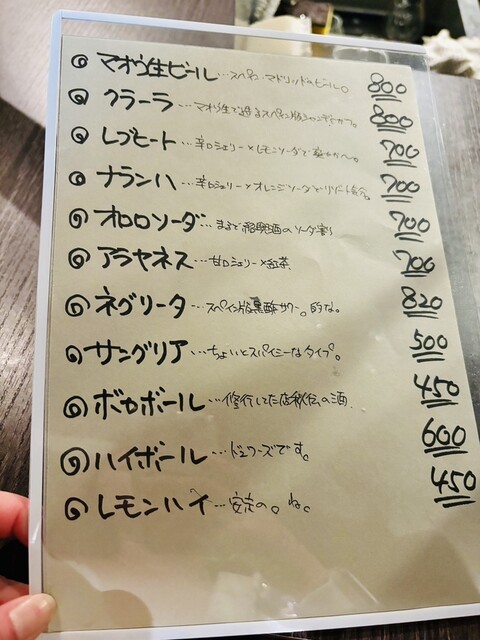 マオウ生ビール…スペイン、マドリッドのビール。 800
クラーラ…マオウ生で造るスペイン版シャンディガフ。 800
レブヒート…辛口シェリー×レモンソーダで爽やかへ。 700
ナランハ…辛口シェリー×オレンジソーダでリゾート気分。 700
オロロソーダ…まるで紹興酒のソーダ割り 700
アラヤネス…甘口シェリー×紅茶 700
ネグリータ…スペイン版黒酢サワー。的な。 820
サングリア…ちょいとスパイシーなタイプ。 500
ボカボール…修行してた店秘伝の酒 450
ハイボール…デュワーズです。 600
レモンハイ…安定の。ね。 450